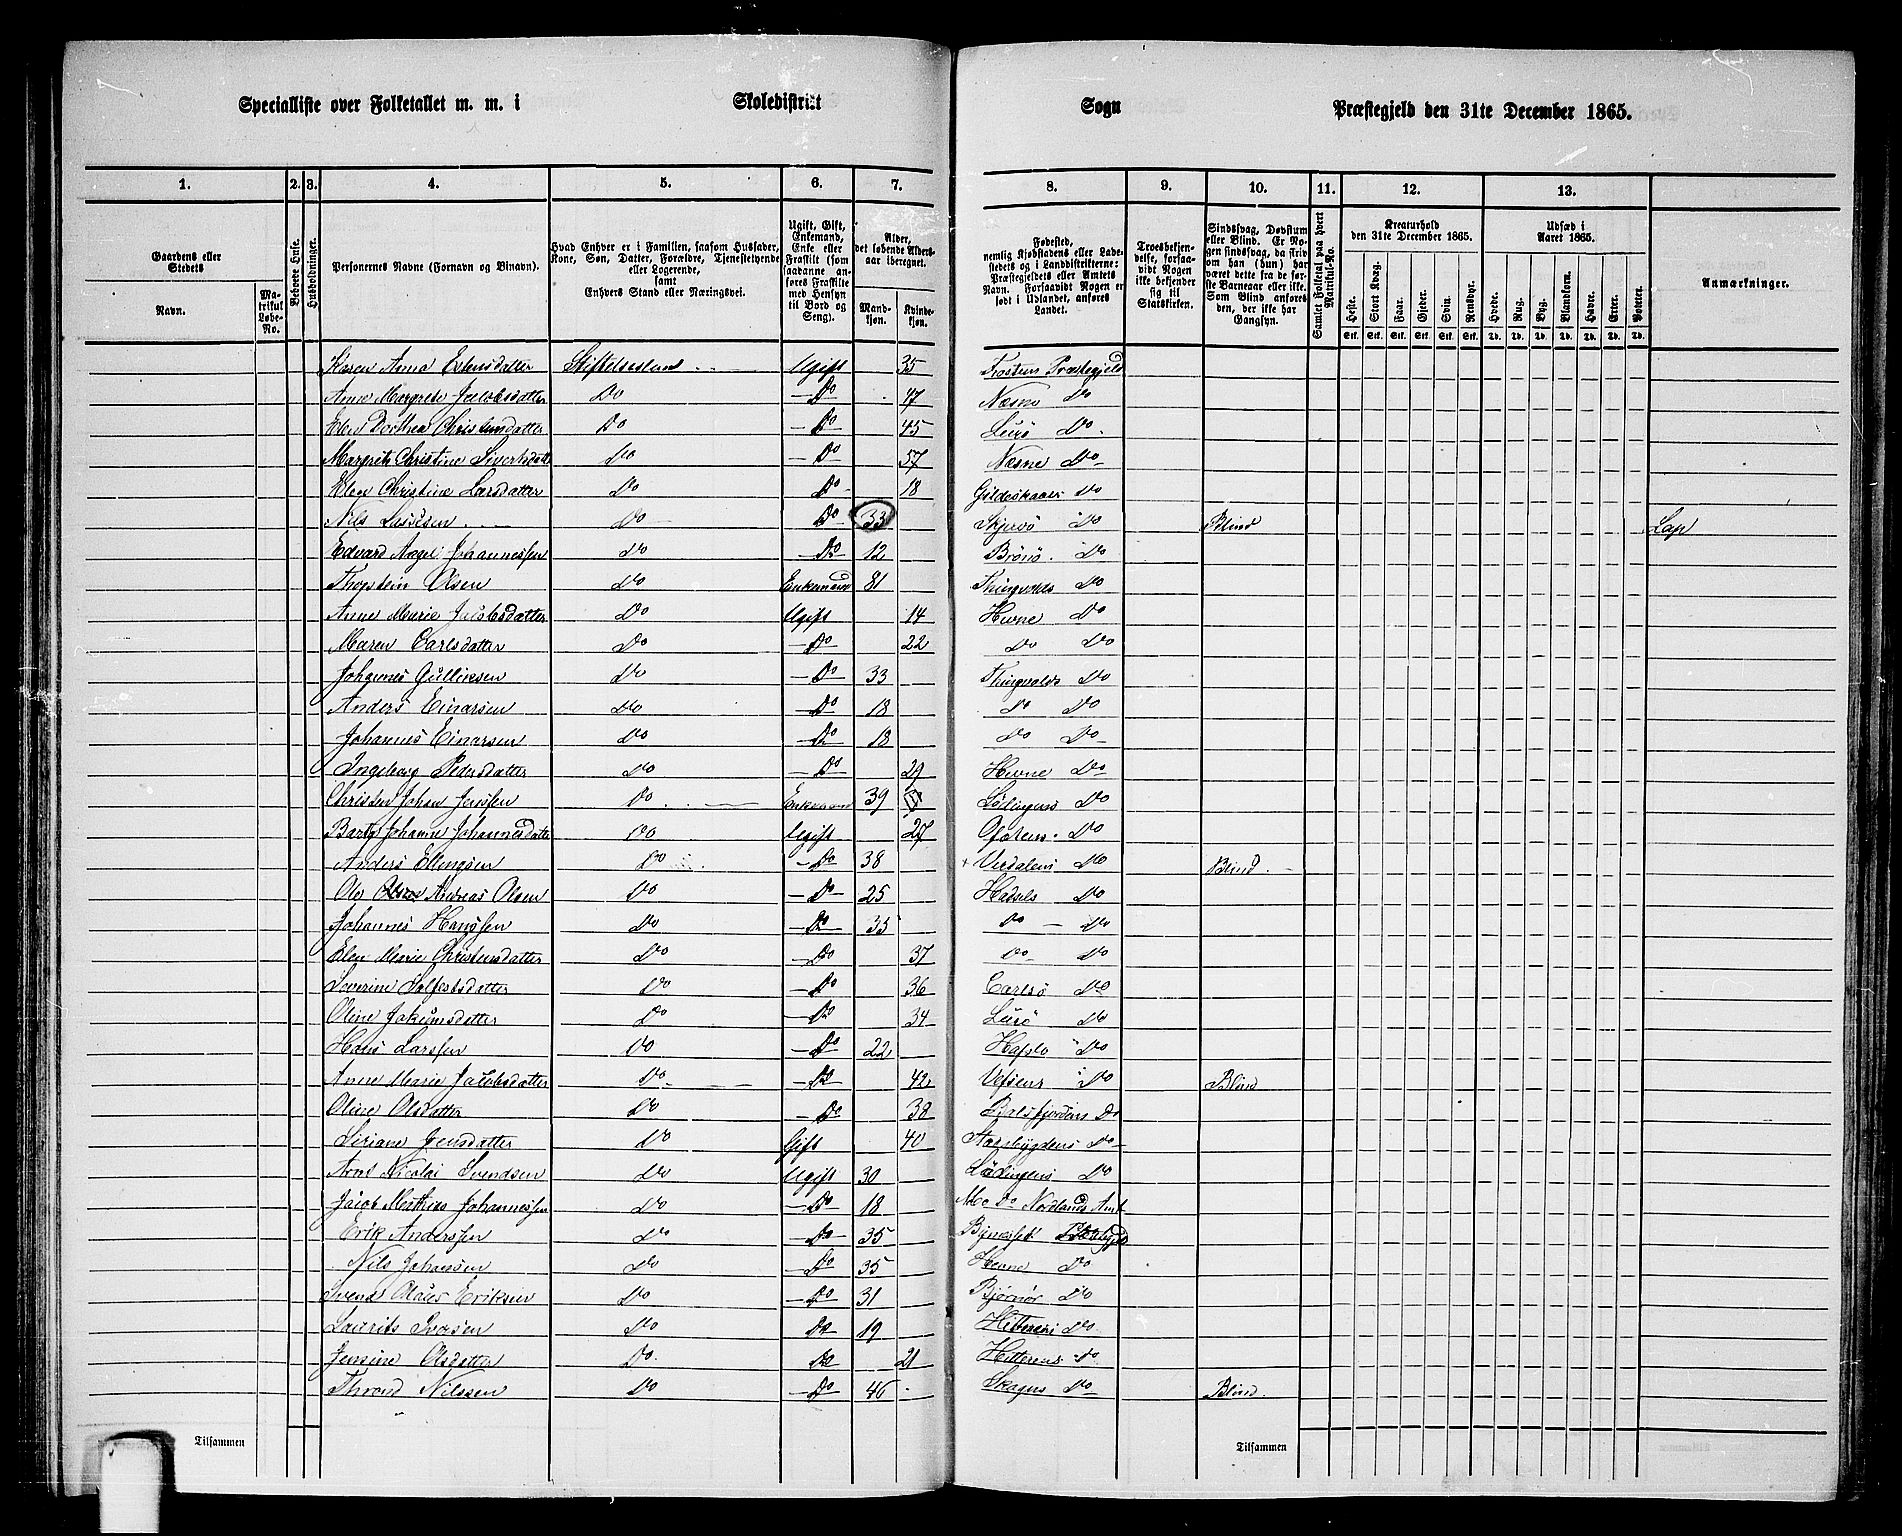 Specialliste over Folketallet m. m. i Skoledistrikt Sogn Præstegjeld den 31te December 1865.
1. 2. 3. 4. 5. 6. 7. 8. 9. 10. 11. 12. 13.
Gaardens eller Stedets
Navn.
Matrikul Løbe-No.
Beboede Huse.
Husholdninger.
Personernes Navne (Fornavn og Binavn).
Hvad Enhver er i Familien, saasom Husfader, Kone, Søn, Datter, Forældre, Tjenestetyende eller Logerende, samt Enhvers Stand eller Næringsvei.
Ugift, Gift, Enkemand, Enke eller Fraskilt (som saadanne anføres Fraskilte med Hensyn til Bord og Seng).
Alder, det løbende Aldersaar iberegnet.
Mandkjøn.
Kvindekjøn.
Fødested, nemlig Kjøbstadens eller Ladestedets og i Landdistrikterne: Præstegjeldets eller Amtets Navn. Forsaavidt Nogen er født i Udlandet, anføres Landet.
Troesbekjendelse, forsaavidt Nogen ikke bekjender sig til Statskirken.
Sindssvag, Døvstum eller Blind. Er Nogen sindssvag, da skrives om han (hun) har været dette fra de første Barneaar eller ikke. Som Blind anføres den, der ikke har Gangsyn.
Samlet Folketal paa hvert Matrikul-No.
Kreaturhold den 31te December 1865.
Heste. Stort Kvæg. Faar. Gjeder. Svin. Rensdyr.
Stk. Stk. Stk. Stk. Stk. Stk.
Udsæd i Aaret 1865.
Hvede. Rug. Byg. Blandkorn. Havre. Erter. Poteter.
Td. Td. Td. Td. Td. Td. Td.
Anmærkninger.
Karen Anna Estensdatter Stiftelseslem Ugift 35 Frostens Præstegjeld
Anne Margrete Jacobsdatter Do Do 47 Næsne Do
Elen Dorthea Christensdatter Do Do 45 Lurø Do
Margrete Christine Sivertsdatter Do Do 57 Næsne Do
Elen Christine Larsdatter Do Do 18 Gildeskaals Do
Nils Lassesen Do Do 33 Skjervø Do Blind Lap
Edvard Aagel Johannessen Do Do 12 Brønø Do
Thorstein Olsen Do Enkemand 81 Thingvolds Do
Anne Marie Jacobsdatter Do Ugift 14 Hevne Do
Maren Carlsdatter Do Do 22 Do Do
Johannes Gulliksen Do Do 33 Thingvolds Do
Anders Einarsen Do Do 18 Do Do
Johannes Einarsen Do Do 18 Do Do
Ingeborg Pedersdatter Do Do 29 Hevne Do
Christen Johan Jenssen Do Enkemand 39 Lødingens Do
Johanne Johannesdatter Do Ugift 27 Ofotens Do
Anders Ellingsen Do Do 38 Verdalens Do Blind
Ole Andreas Olsen Do Do 25 Hadsels Do
Johannes Hanssen Do Do 35 Do Do
Elen Marie Christensdatter Do Do 37 Do Do
Severine Do Do 36 Carlsø Do
Oline Jakumsdatter Do Do 34 Lurø Do
Hans Larssen Do Do 22 Hafslo Do
Anne Marie Jacobsdatter Do Do 42 Vefsens Do Blind
Oline Olsdatter Do Do 38 Balsfjordens Do
Siriane Jensdatter Do Gift 40 Stadsbygdens Do
Arnt Nicolai Svendsen Do Ugift 30 Lødingens Do
Jacob Mathias Johannessen Do Do 18 Do Nordlands Amt
Erik Anderssen Do Do 35 Bynesset Præstegjeld
Nils Johansen Do Do 35 Hevne Do
Svend Olaus Eriksen Do Do 31 Bjørnør Do
Laurits Iversen Do Do 19 Hitterens Do
Jensine Olsdatter Do Do 21 Hitterens Do
Thrond Nilssen Do Do 46 Skogns Do Blind
Tilsammen Tilsammen